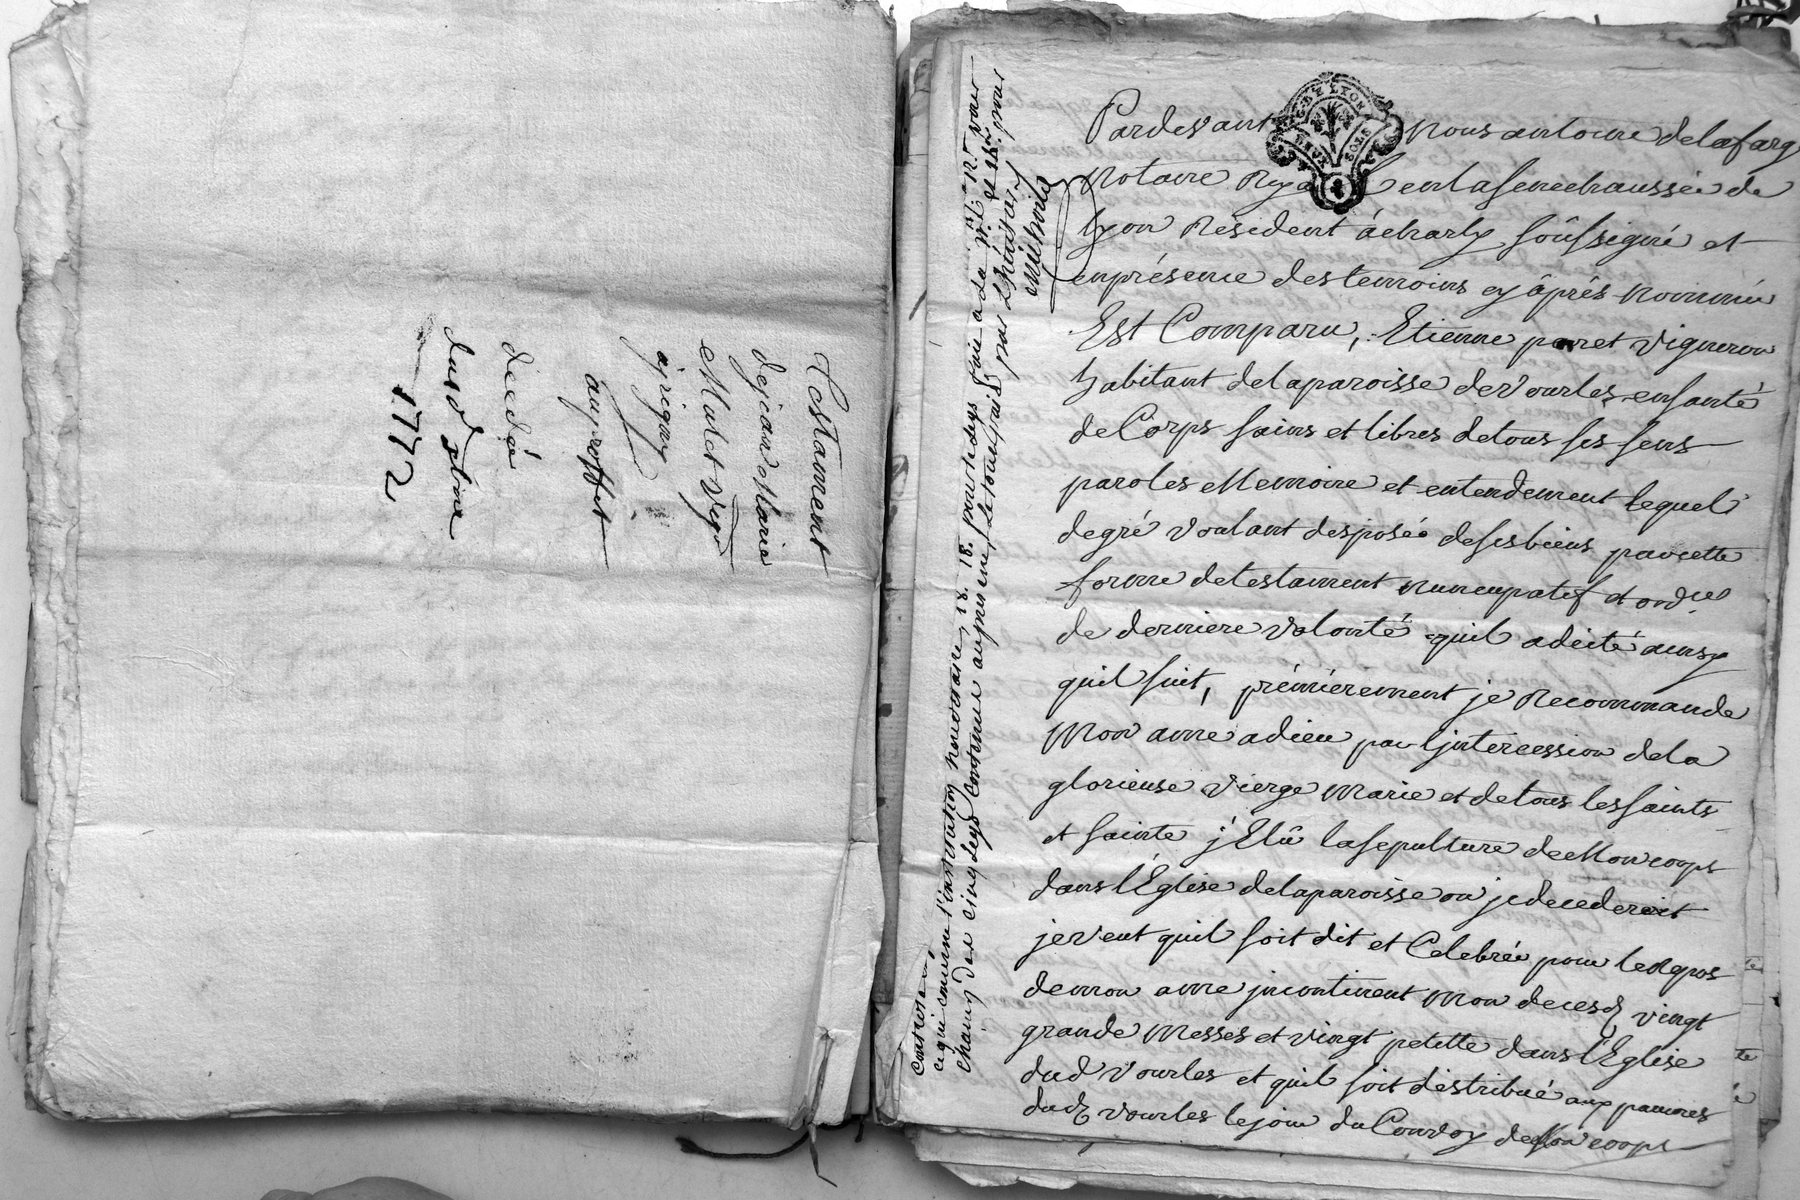 Testament
dejean Marie
Malet Vigr
a jrigny
au proffit
decedé
dud
1772
controle
ce qui concerne l'institution hereditaire 18. 18. pour
chacun des cinq Legs contenus au present,
par
G. DE LYON
SOLS
Pardevant Nous antoine delafarg
Notaire Royal en la senechaussée de
lyon Résident à charly soûssigné et
en présence des temoins cy âprés nommés
Est Comparu, Etienne poret vigneron
habitant de la paroisse de Vourles en santé
de Corps sains et libres de tous ses sens
paroles Memoire et entendement lequel
de gré voulant desposé de ses biens par cette
forme de testament nuncupatif et ordre
de derniere volonté quil a dicté ainsy
quil suit, prémiérement je Recommande
Mon ame a dieu par l'jntercession de la
glorieuse vierge Marie et de tous les saints
et sainte j'Elû la sepulture de Mon corps
dans l'Église de la paroisse ou je decederoit
je veut quil soit dit et Celebrée pour le Repos
de mon ame jncontinent Mon decesd vingt
grande Messes et vingt petitte dans l'Eglise
dud Vourles et quil soit distribué aux pauvres
dud Vourles le jour du Convoy de Mon corps